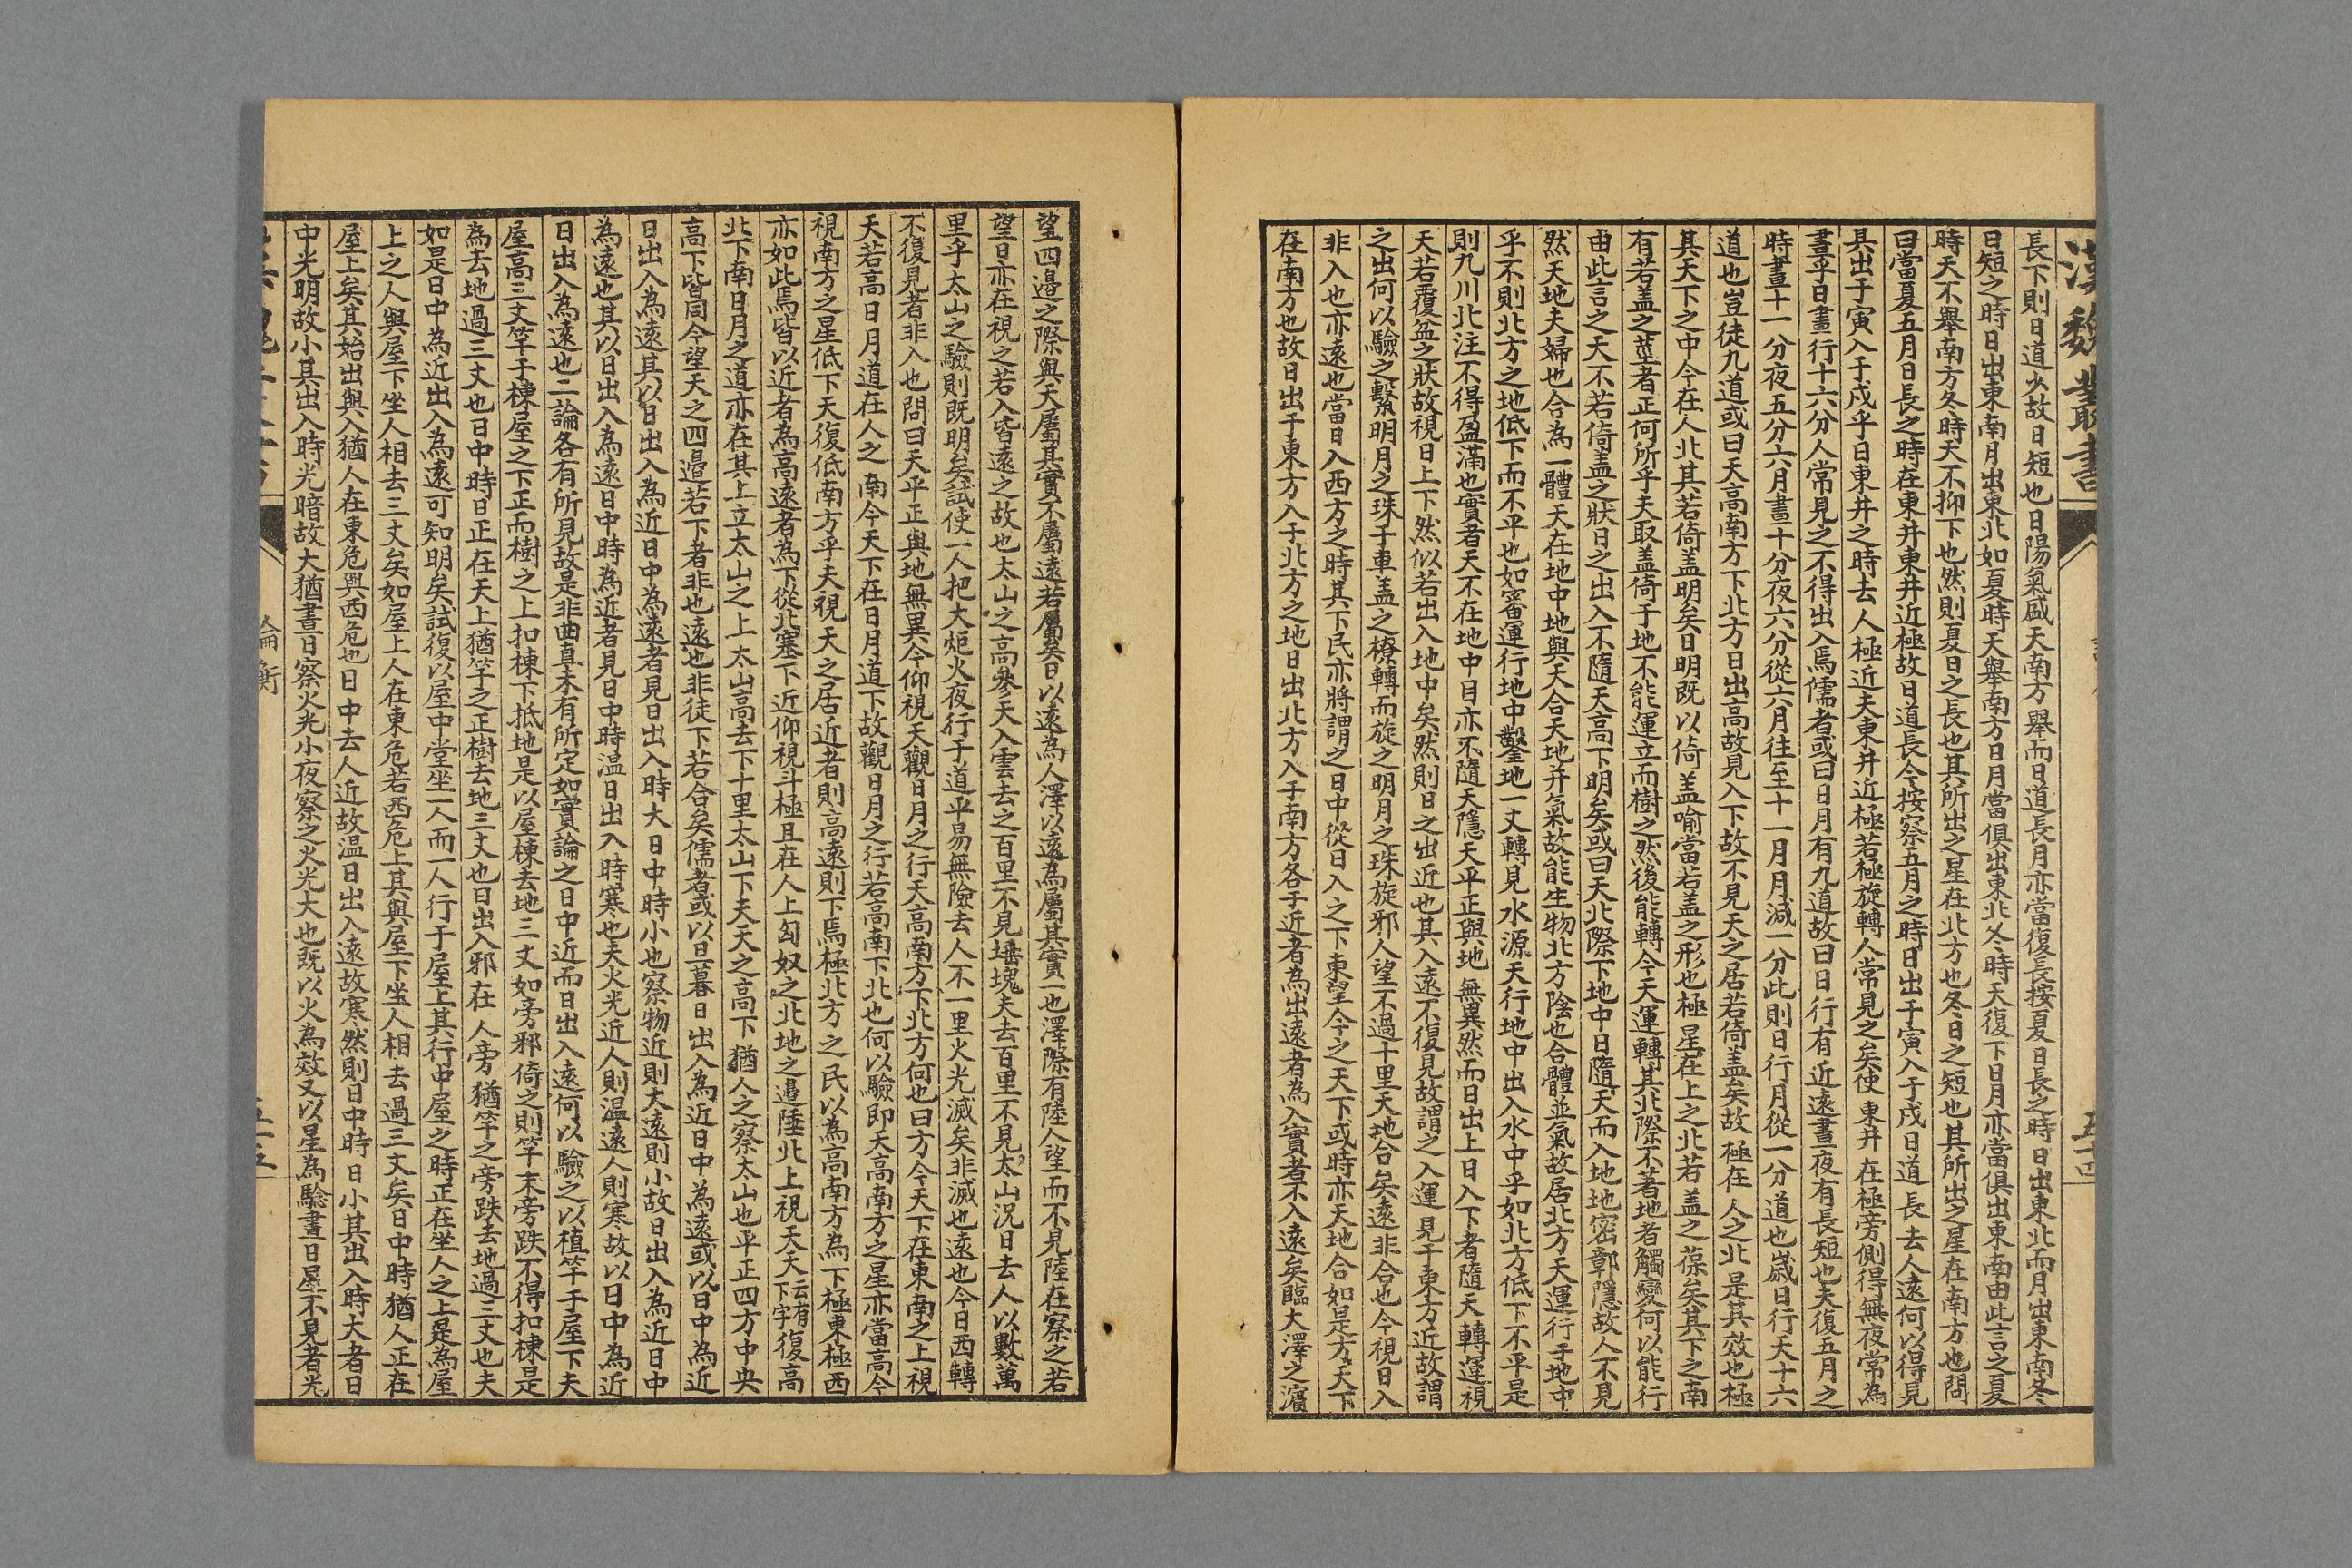 漢魏叢書
五十四
長下則日道少故日短也日陽氣盛天南方舉而日道長月亦當復長按夏日長之時日出東北而月出東南冬
日短之時日出東南月出東北如夏時天舉南方日月當俱出東北冬時天復下日月亦當俱出東南由此言之夏
時天不舉南方冬時天不抑下也然則夏日之長也其所出之星在北方也冬日之短也其所出之星在南方也問
曰當夏五月日長之時在東井東井近極故日道長今按察五月之時日出于寅入于戌日道長去人遠何以得見
其出于寅入于戌乎日東井之時去人極近夫東井近極若極旋轉人常見之矣使東井在極旁側得無夜常為
晝乎日晝行十六分人常見之不得出入焉儒者或曰日月有九道故曰日行有近遠晝夜有長短也夫復五月之
時晝十一分夜五分六月晝十分夜六分從六月往至十一月月減一分此則日行月從一分道也歲日行天十六
道也豈徒九道或曰天高南方下北方日出高故見入下故不見天之居若倚盖矣故極在人之北是其效也極
其天下之中今在人北其若倚盖明矣日明既以倚盖喻當若盖之形也極星在上之北若盖之葆矣其下之南
有若盖之莖者正何所乎夫取盖倚于地不能運立而樹之然後能轉今天運轉其北際不著地者觸礙何以能行
由此言之天不若倚盖之狀日之出入不隨天高下明矣或曰天北際下地中日隨天而入地地密鄣隱故人不見
然天地夫婦也合為一體天在地中地與天合天地并氣故能生物北方陰也合體並氣故居北方天運行于地中
乎不則北方之地低下而不平也如審運行地中鑿地一丈轉見水源天行地中出入水中乎如北方低下不平是
則九川北注不得盈滿也實者天不在地中日亦不隨天隱天平正與地無異然而日出上日入下者隨天轉運視
天若覆盆之狀故視日上下然似若出入地中矣然則日之出近也其入遠不復見故謂之入運見于東方近故謂
之出何以驗之繫明月之珠于車盖之橑轉而旋之明月之珠旋邪人望不過十里天地合矣遠非合也今視日入
非入也亦遠也當日入西方之時其下民亦將謂之日中從日入之下東望今之天下或時亦天地合如是方天下
在南方也故日出于東方入于北方之地日出北方入于南方各于近者為出遠者為入實者不入遠矣臨大澤之濱
望四邉之際與天屬其實不屬遠若屬矣日以遠為人澤以遠為屬其實一也澤際有陸人望而不見陸在察之若
望日亦在視之若入皆遠之故也太山之高參天入雲去之百里不見埵塊夫去百里不見太山況日去人以數萬
里乎太山之驗則既明矣試使一人把大炬火夜行于道平易無險去人不一里火光滅矣非滅也遠也今日西轉
不復見者非入也問曰天平正與地無異今仰視天觀日月之行天高南方下北方何也曰方今天下在東南之上視
天若高日月道在人之南今天下在日月道下故觀日月之行若高南下北也何以驗即天高南方之星亦當高今
視南方之星低下天復低南方乎夫視天之居近者則高遠則下焉極北方之民以為高南方為下極東極西
亦如此焉皆以近者為高遠者為下從北塞下近仰視斗極且在人上匈奴之北地之邉陲北上視天天云有下字復高
北下南日月之道亦在其上立太山之上太山高去下十里太山下夫天之高下猶人之察太山也平正四方中央
高下皆同今望天之四邉若下者非也遠也非徒下若合矣儒者或以旦暮日出入為近日中為遠或以日中為近
日出入為遠其以日出入為近日中為遠者見日出入時大日中時小也察物近則大遠則小故日出入為近日中
為遠也其以日出入為遠日中時為近者見日中時温日出入時寒也夫火光近人則温遠人則寒故以日中為近
日出入為遠也二論各有所見故是非曲直未有所定如實論之日中近而日出入遠何以驗之以植竿于屋下夫
屋高三丈竿于棟屋之下正而樹之上扣棟下抵地是以屋棟去地三丈如旁邪倚之則竿末旁跌不得扣棟是
為去地過三丈也日中時日正在天上猶竿之正樹去地三丈也日出入邪在人旁猶竿之旁跌去地過三丈也夫
如是日中為近出入為遠可知明矣試復以屋中堂坐一人而一人行于屋上其行中屋之時正在坐人之上是為屋
上之人與屋下坐人相去三丈矣如屋上人在東危若西危上其與屋下坐人相去過三丈矣日中時猶人正在
屋上矣其始出與入猶人在東危與西危也日中去人近故温日出入遠故寒然則日中時日小其出入時大者日
中光明故小其出入時光暗故大猶晝日察火光小夜察之火光大也既以火為效又以星為驗晝日星不見者光
論衡